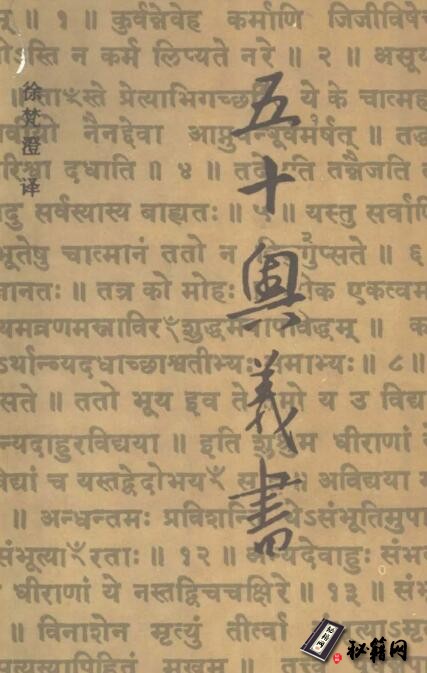 五十奥義書
徐梵澄译
॥ १ ॥ कुर्वन्नेवेह कर्माणि जिजीविषे
ऽस्ति न कर्म लिप्यते नरे ॥ २ ॥ असूय
॥ प्रेत्याभिगच्छ ये के चात्मह
नैनद्देवा आप्नुवन्पूर्वमर्षत् ॥ तद्ध
रिश्वा दधाति ॥ ४ ॥ तदेजति तन्नैजति त
दु सर्वस्यास्य बाह्यतः ॥ ५ ॥ यस्तु सर्वाणि
भूतेषु चात्मानं ततो न गुप्सते ॥ ६
नानतः ॥ तत्र को मोहः एकत्वम
यमव्रणमस्नाविरँ शुद्धमपापविद्धम् ॥ क
ऽर्थान्व्यदधाच्छाश्वतीभ्यः समाभ्यः ॥ ८ ॥
सते ॥ ततो भूय इव ते य उ विद्य
न्यदाहुरविद्यया ॥ इति शुश्रुम धीराणां
विद्यां च यस्तद्वेदोभयँ ॥ अविद्यया म
॥ अन्धन्तमः प्रविशन्ति येऽसंभूतिमुपा
संभूत्याँ रताः ॥ १२ ॥ अन्यदेवाहुः संभव
धीराणां ये नस्तद्विचचक्षिरे ॥ १३ ॥ संभ
॥ विनाशेन मृत्युं तीर्त्वा
मुखम्
秘籍网